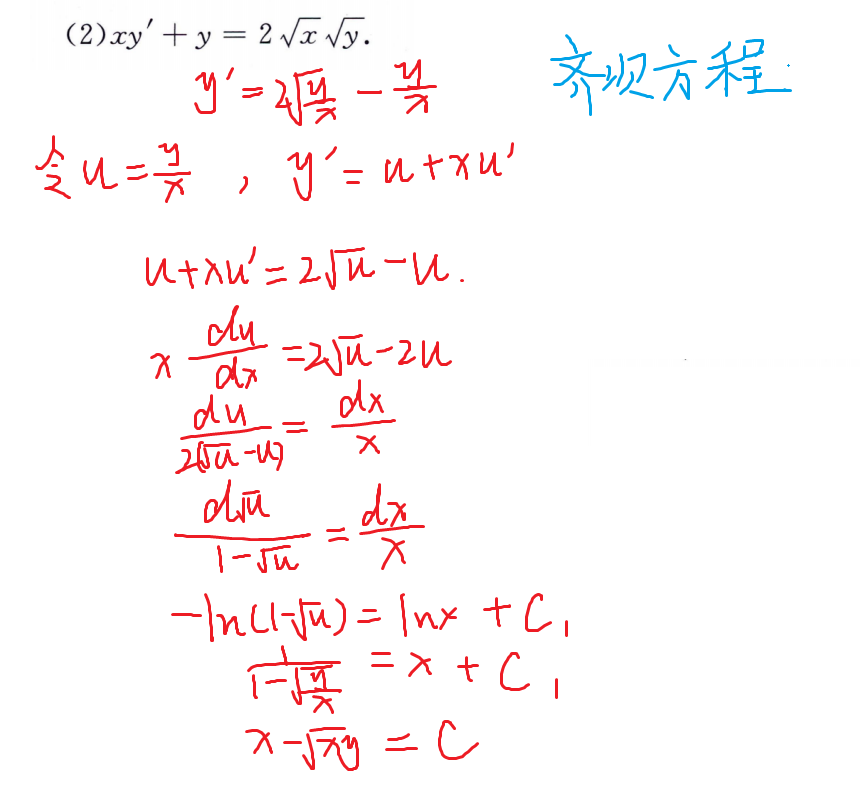 (2)xy′ + y = 2√x √y.
y′ = 2√(y/x) − y/x
齐次方程.
令 u = y/x , y′ = u + xu′
u + xu′ = 2√u − u.
x du/dx = 2√u − 2u
du/2(√u − u) = dx/x
d√u/(1 − √u) = dx/x
−ln(1−√u) = lnx + C₁
1/(1−√(y/x)) = x + C₁
x − √xy = C